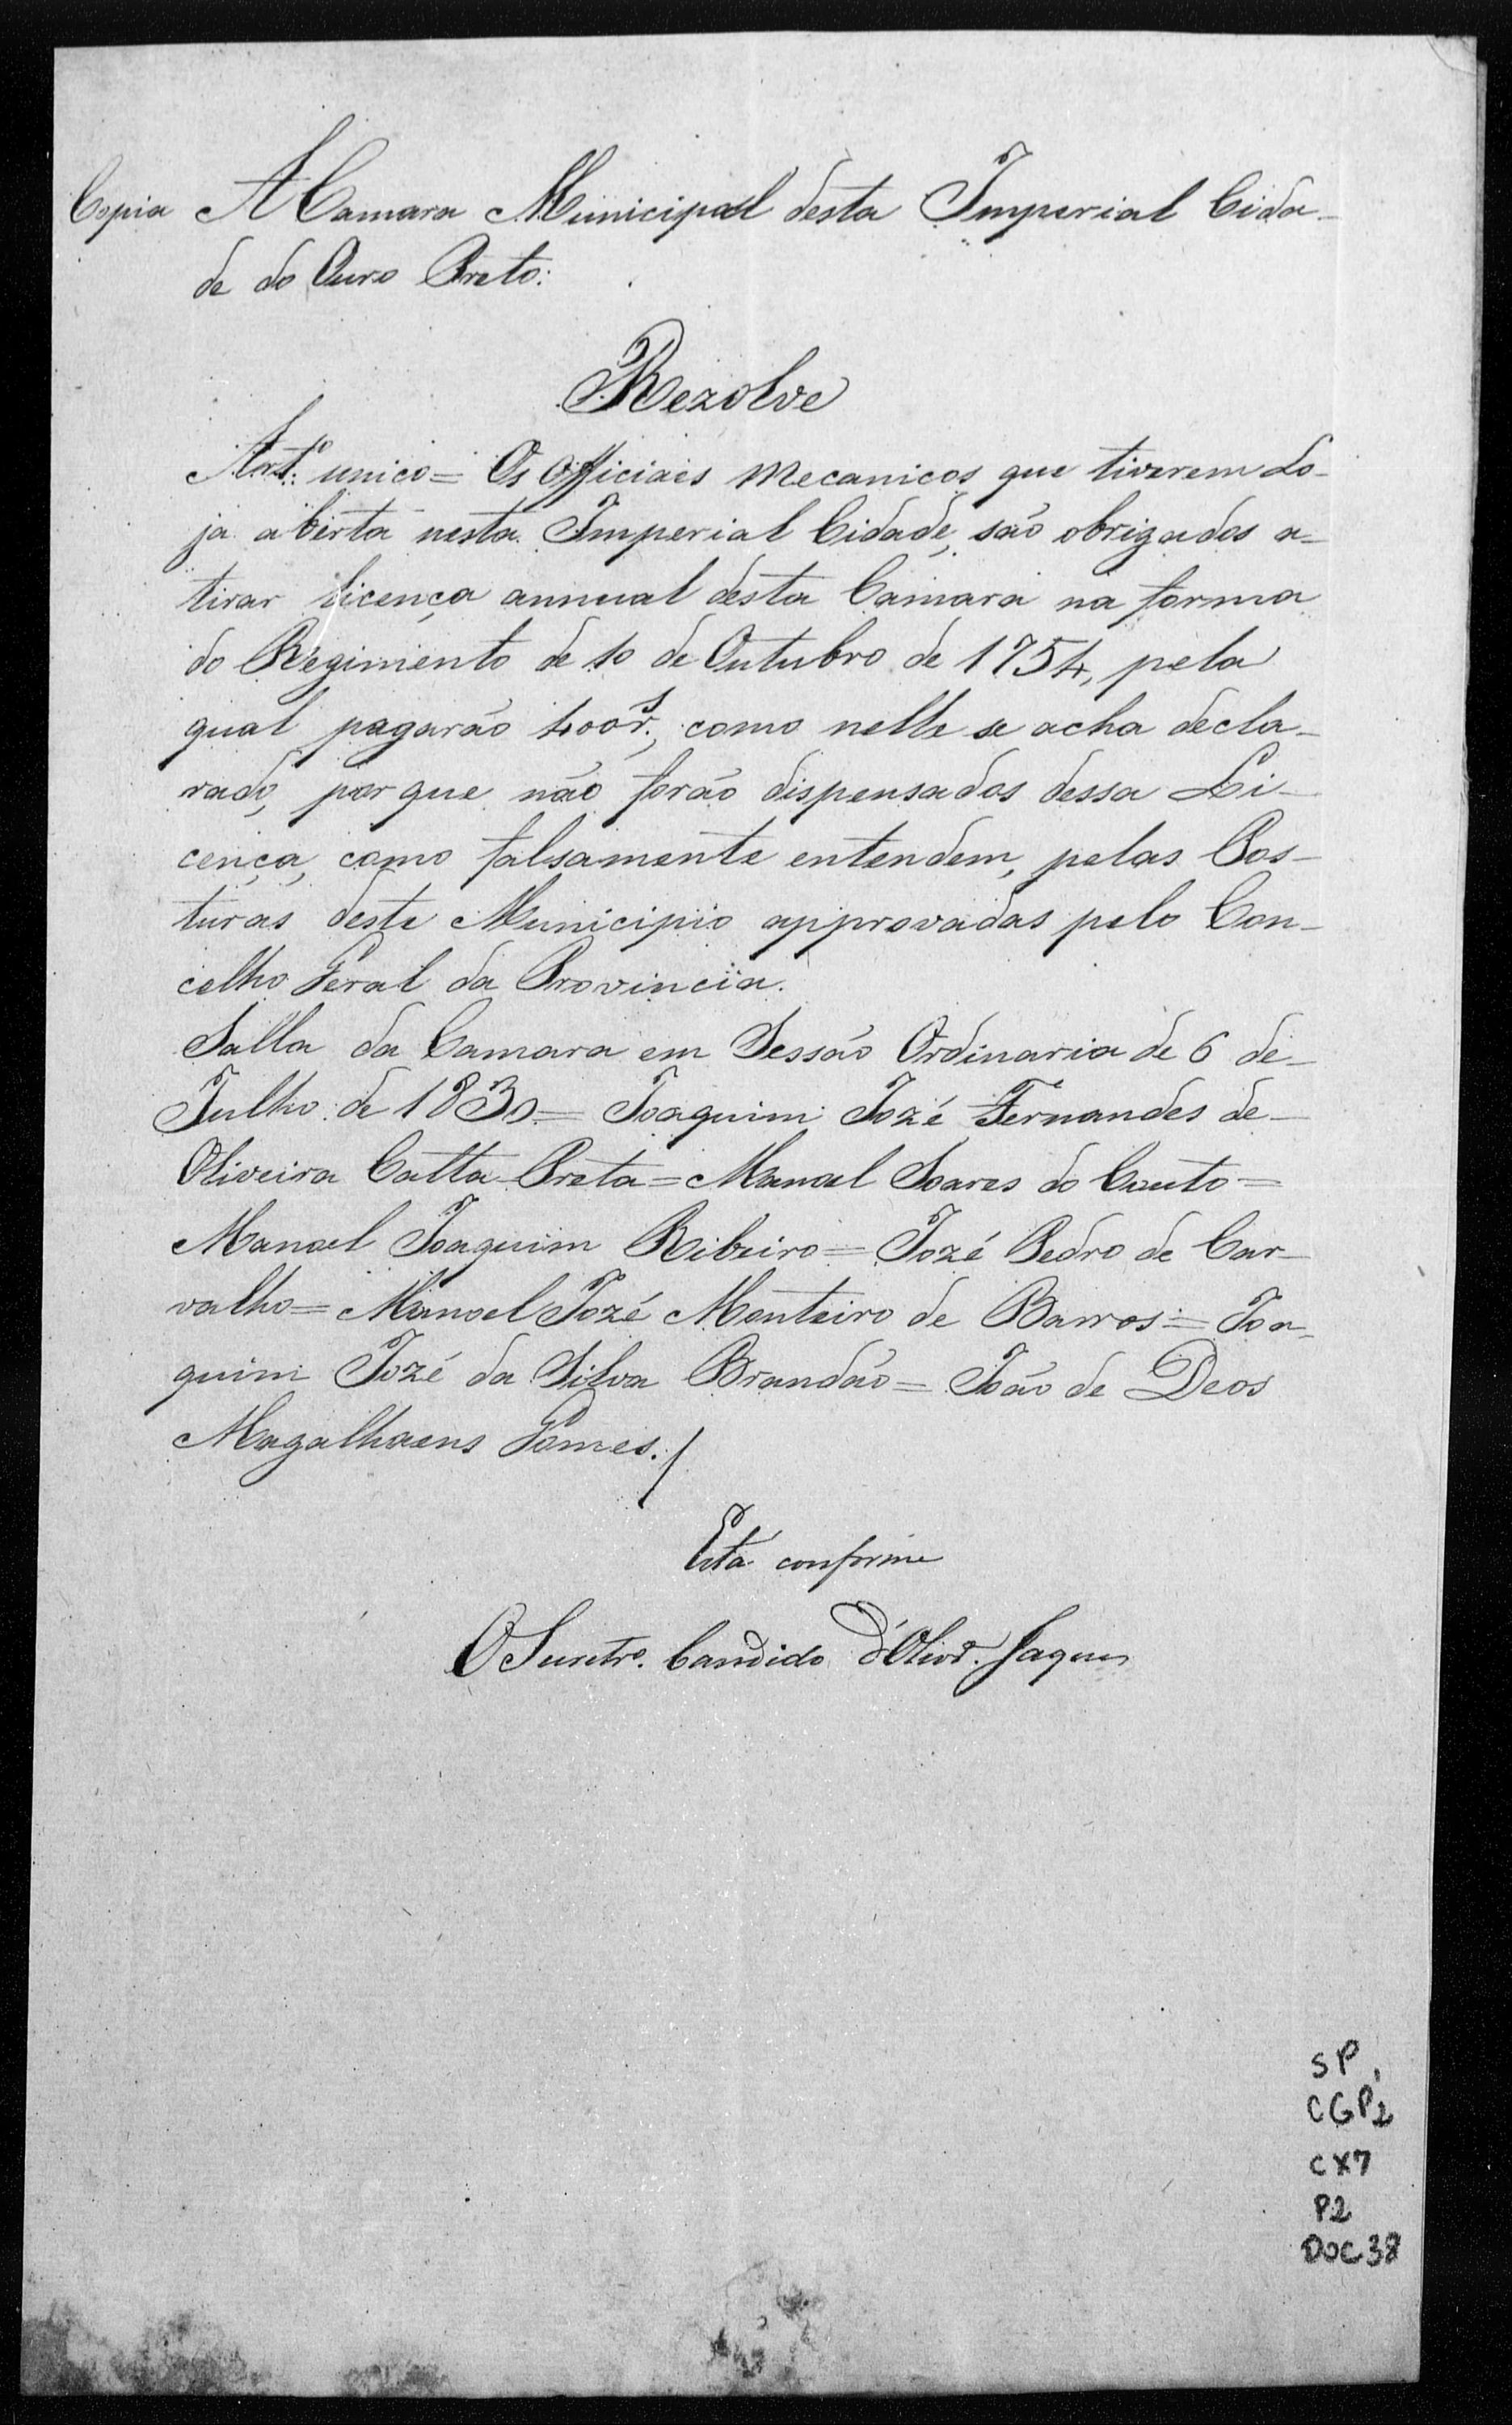 Copia A Camara Municipal desta Imperial Cida-
de do Ouro Preto:
Rezolve
Artº: unico= Os Officiaes Mecanicos que tiverem Lo-
ja aberta nesta Imperial Cidade, são obrigados a-
tirar licença annual desta Camara na forma
do Regimento de 10 de Outubro de 1754, pela
qual pagarão 400rs., como nelle se acha decla-
rado, por que não forão dispensados dessa Li-
cença, como falsamente entendem, pelas Pos-
turas deste Municipio approvadas pelo Con-
celho Geral da Provincia.
Salla da Camara em Sessão Ordinaria de 6 de-
Julho de 1830= Joaquim Jozé Fernandes de-
Oliveira Catta Preta= Manoel Soares do Couto=
Manoel Joaquim Ribeiro= Jozé Pedro de Car-
valho= Manoel Jozé Monteiro de Barros= Joa-
quim Jozé da Silva Brandão= João de Deos
Magalhaens Gomes./
Está conforme
O Secretrº. Candido d'Olivrª. Jaques
SP,
CGP2
CX7
P2
DOC38